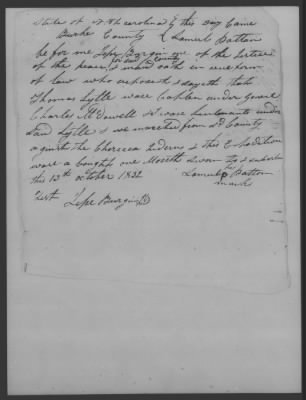 State of N Thcarolina } this Day Came
Burke County } Samuel Patton
be fore me Jesse Burgin one of the Justises
of the peace for said County & made oath in due form
of law who deposeth & sayeth that
Thomas Lytle ware Captin under Generl
Charles McDowell & ware Lieutenants under
said Lytle & we marched from sd County
aginst the Chericea inderns & this Exhodition
ware a bought one Month Sworn to & subscribe
this 13th october 1832 Samuel Patton
Test Jesse Burgin JP mark